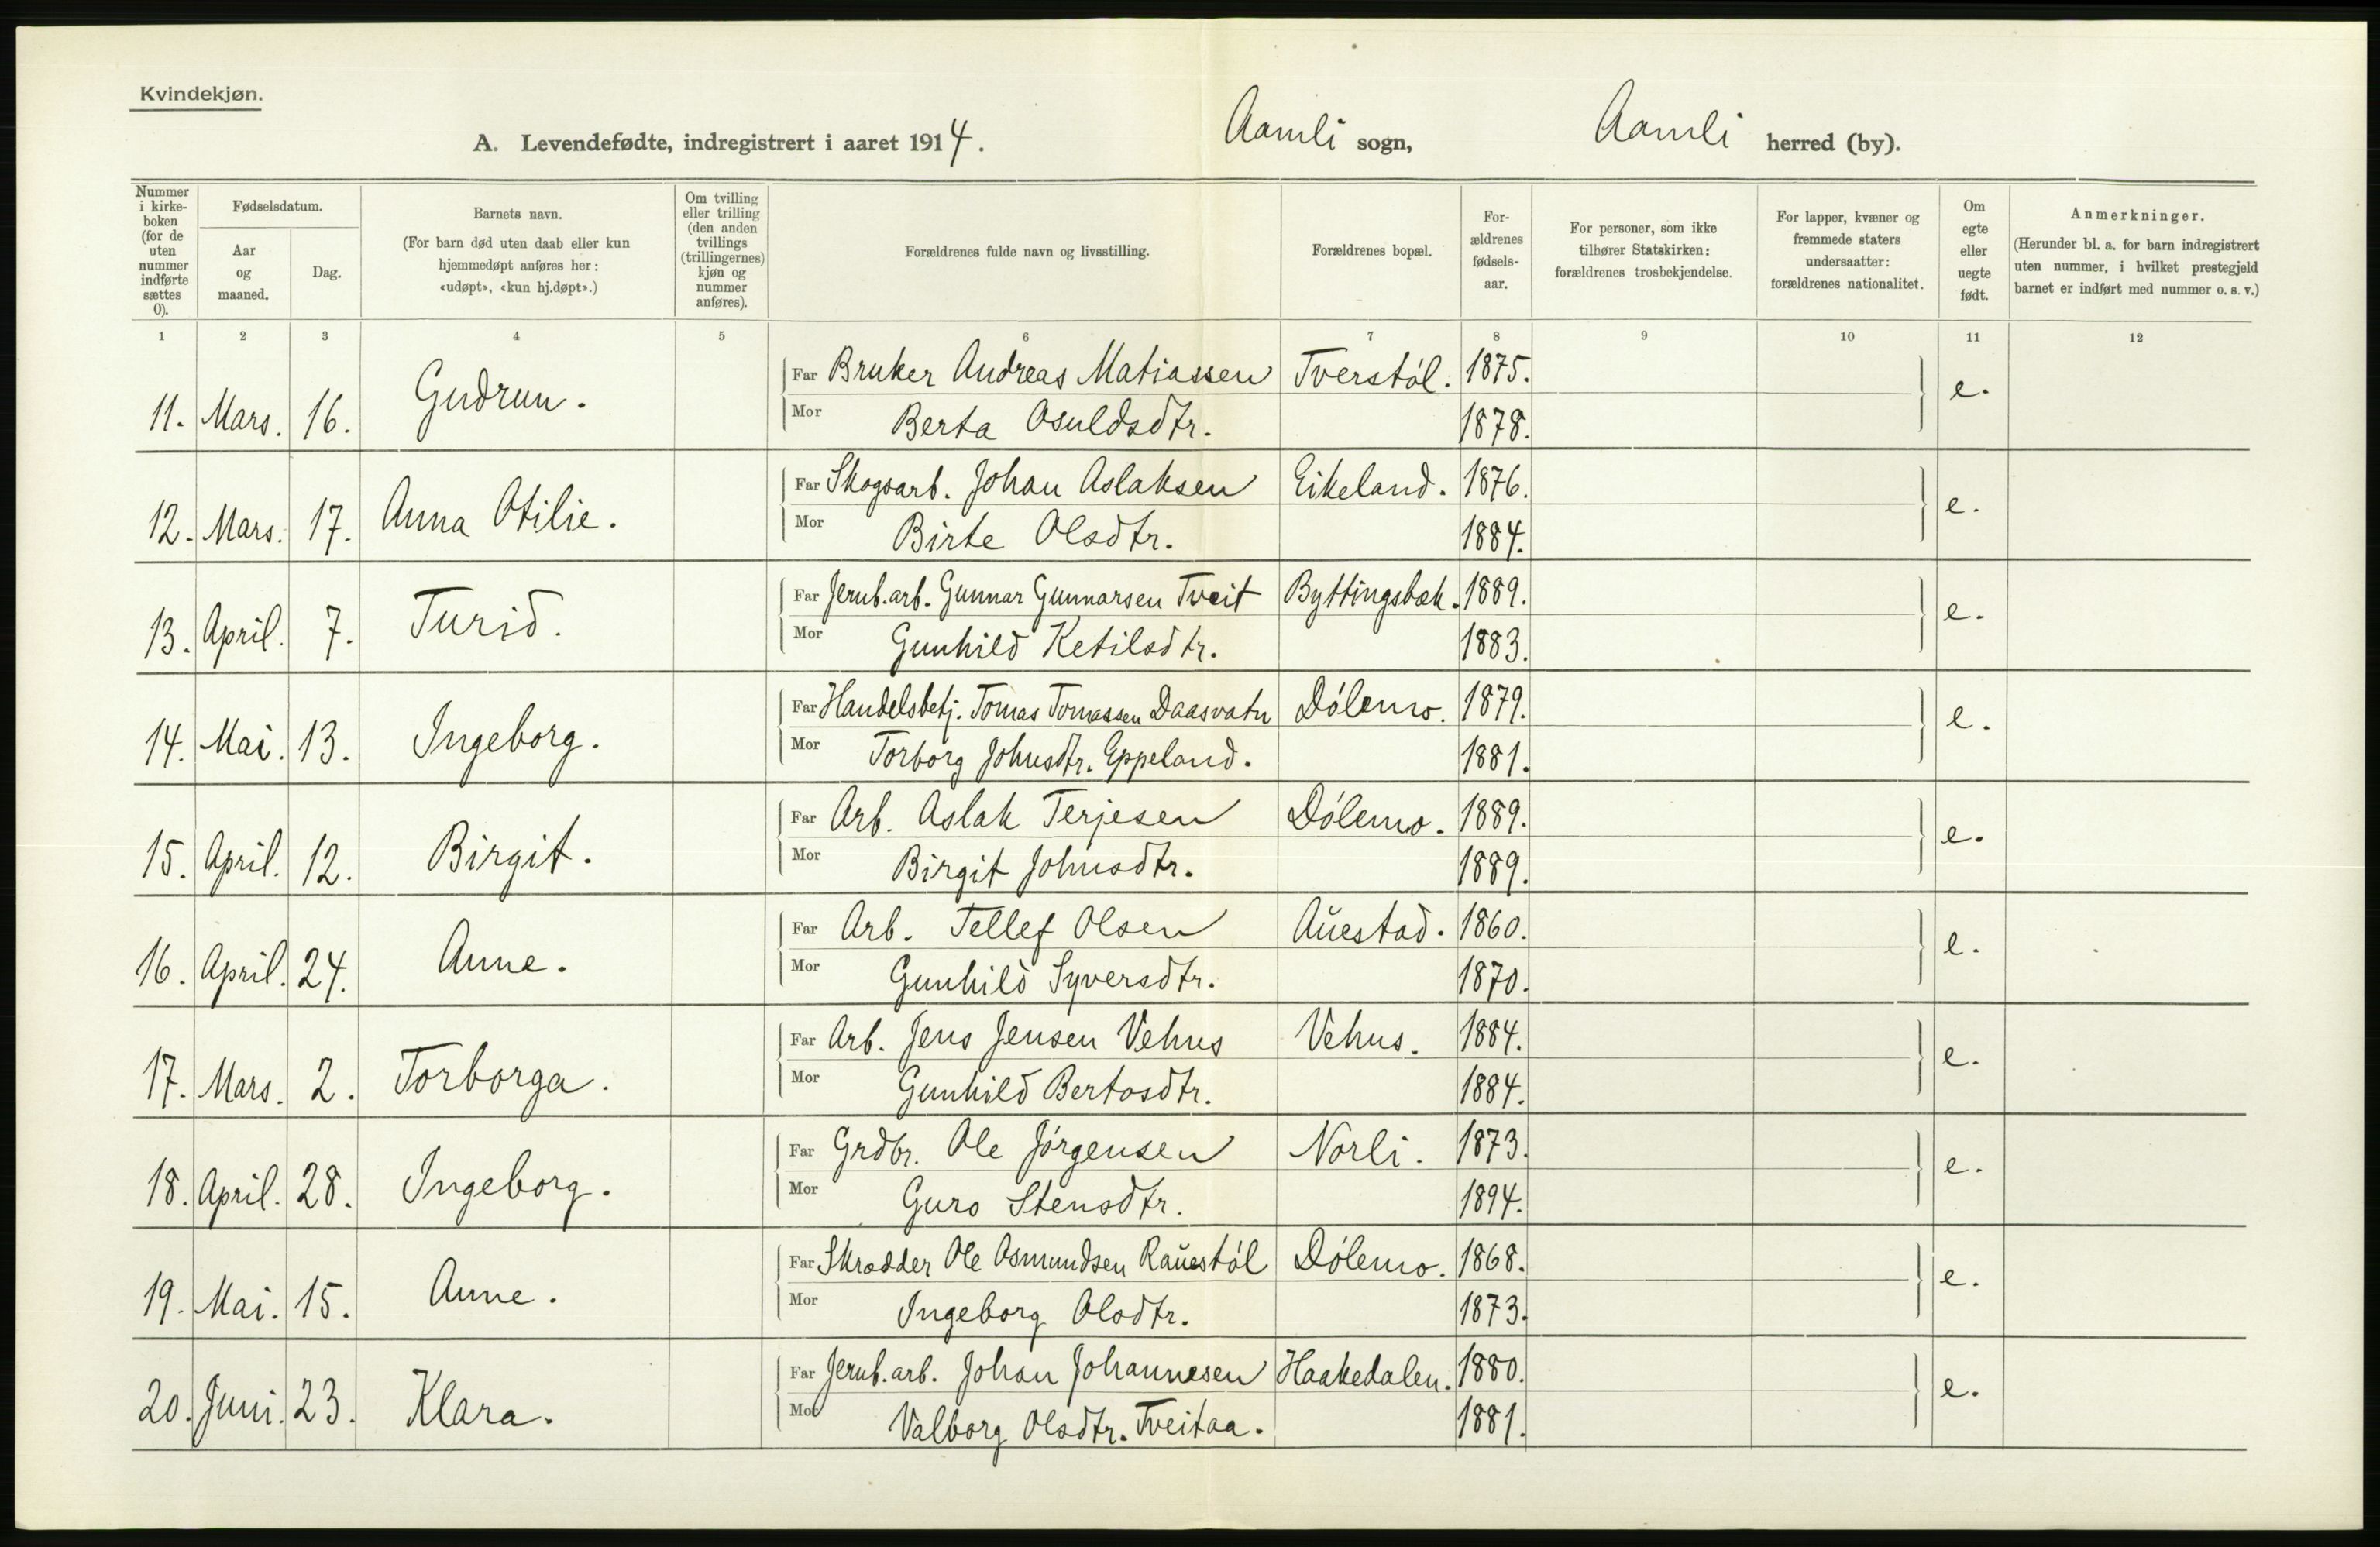 Kvindekjøn.
A. Levendefødte, indregistrert i aaret 1914. Aamli sogn, Aamli herred (by).
Nummer i kirke-boken (for de uten nummer indførte sættes 0).
Fødselsdatum.
Aar og maaned.
Dag.
Barnets navn.
(For barn død uten daab eller kun hjemmedøpt anføres her: «udøpt», «kun hj.døpt».)
Om tvilling eller trilling (den anden tvillings (trillingernes) kjøn og nummer anføres).
Forældrenes fulde navn og livsstilling.
Forældrenes bopæl.
For-ældrenes fødsels-aar.
For personer, som ikke tilhører Statskirken: forældrenes trosbekjendelse.
For lapper, kvæner og fremmede staters undersaatter: forældrenes nationalitet.
Om egte eller uegte født.
Anmerkninger.
(Herunder bl. a. for barn indregistrert uten nummer, i hvilket prestegjeld barnet er indført med nummer o. s. v.)
1 2 3 4 5 6 7 8 9 10 11 12
11. Mars. 16. Gudrun. Far Bruker Andreas Matiassen Tverstól. 1875. e.
Mor Berta Osuldsdtr. 1878.
12. Mars. 17. Anna Otilie. Far Skogsarb. Johan Aslaksen Eikeland. 1876. e.
Mor Birte Olsdtr. 1884.
13. April. 7. Turid. Far Jernb.arb. Gunnar Gunnarsen Tveit Byttingsbæk. 1889. e.
Mor Gunhild Ketilsdtr. 1883.
14. Mai. 13. Ingeborg. Far Handelsbetj. Tomas Tomassen Daasvatn Dólemo. 1879. e.
Mor Torborg Johnsdtr. Eppeland. 1881.
15. April. 12. Birgit. Far Arb. Aslak Terjesen Dólemo. 1889. e.
Mor Birgit Johnsdtr. 1889.
16. April. 24. Anne. Far Arb. Tellef Olsen Auestad. 1860. e.
Mor Gunhild Syversdtr. 1870.
17. Mars. 2. Torborga. Far Arb. Jens Jensen Vehus Vehus. 1884. e.
Mor Gunhild Bertosdtr. 1884.
18. April. 28. Ingeborg. Far Grdbr. Ole Jórgensen Norli. 1873. e.
Mor Guro Stensdtr. 1894.
19. Mai. 15. Anne. Far Skrædder Ole Osmundsen Rauestól Dólemo. 1868. e.
Mor Ingeborg Olsdtr. 1873.
20. Juni. 23. Klara. Far Jernb.arb. Johan Johannesen Haakedalen. 1880. e.
Mor Valborg Olsdtr. Tveitaa. 1881.